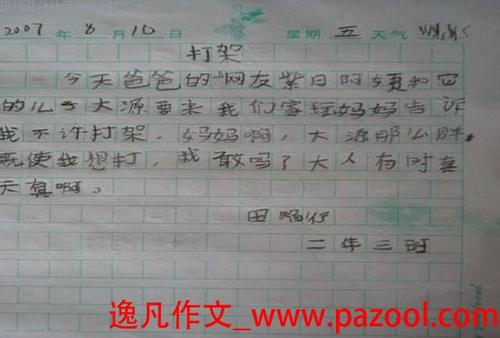 2007年8月10日 星期五 天气
打架
今天爸爸的网友紫日阿须和它
的儿子大源要来我们家玩妈妈告诉
我不许打架，妈妈啊，大源那么胖，
既使我想打，我敢吗？大人有时真
天真啊。
田
二年三班
逸凡作文_www.pazool.com